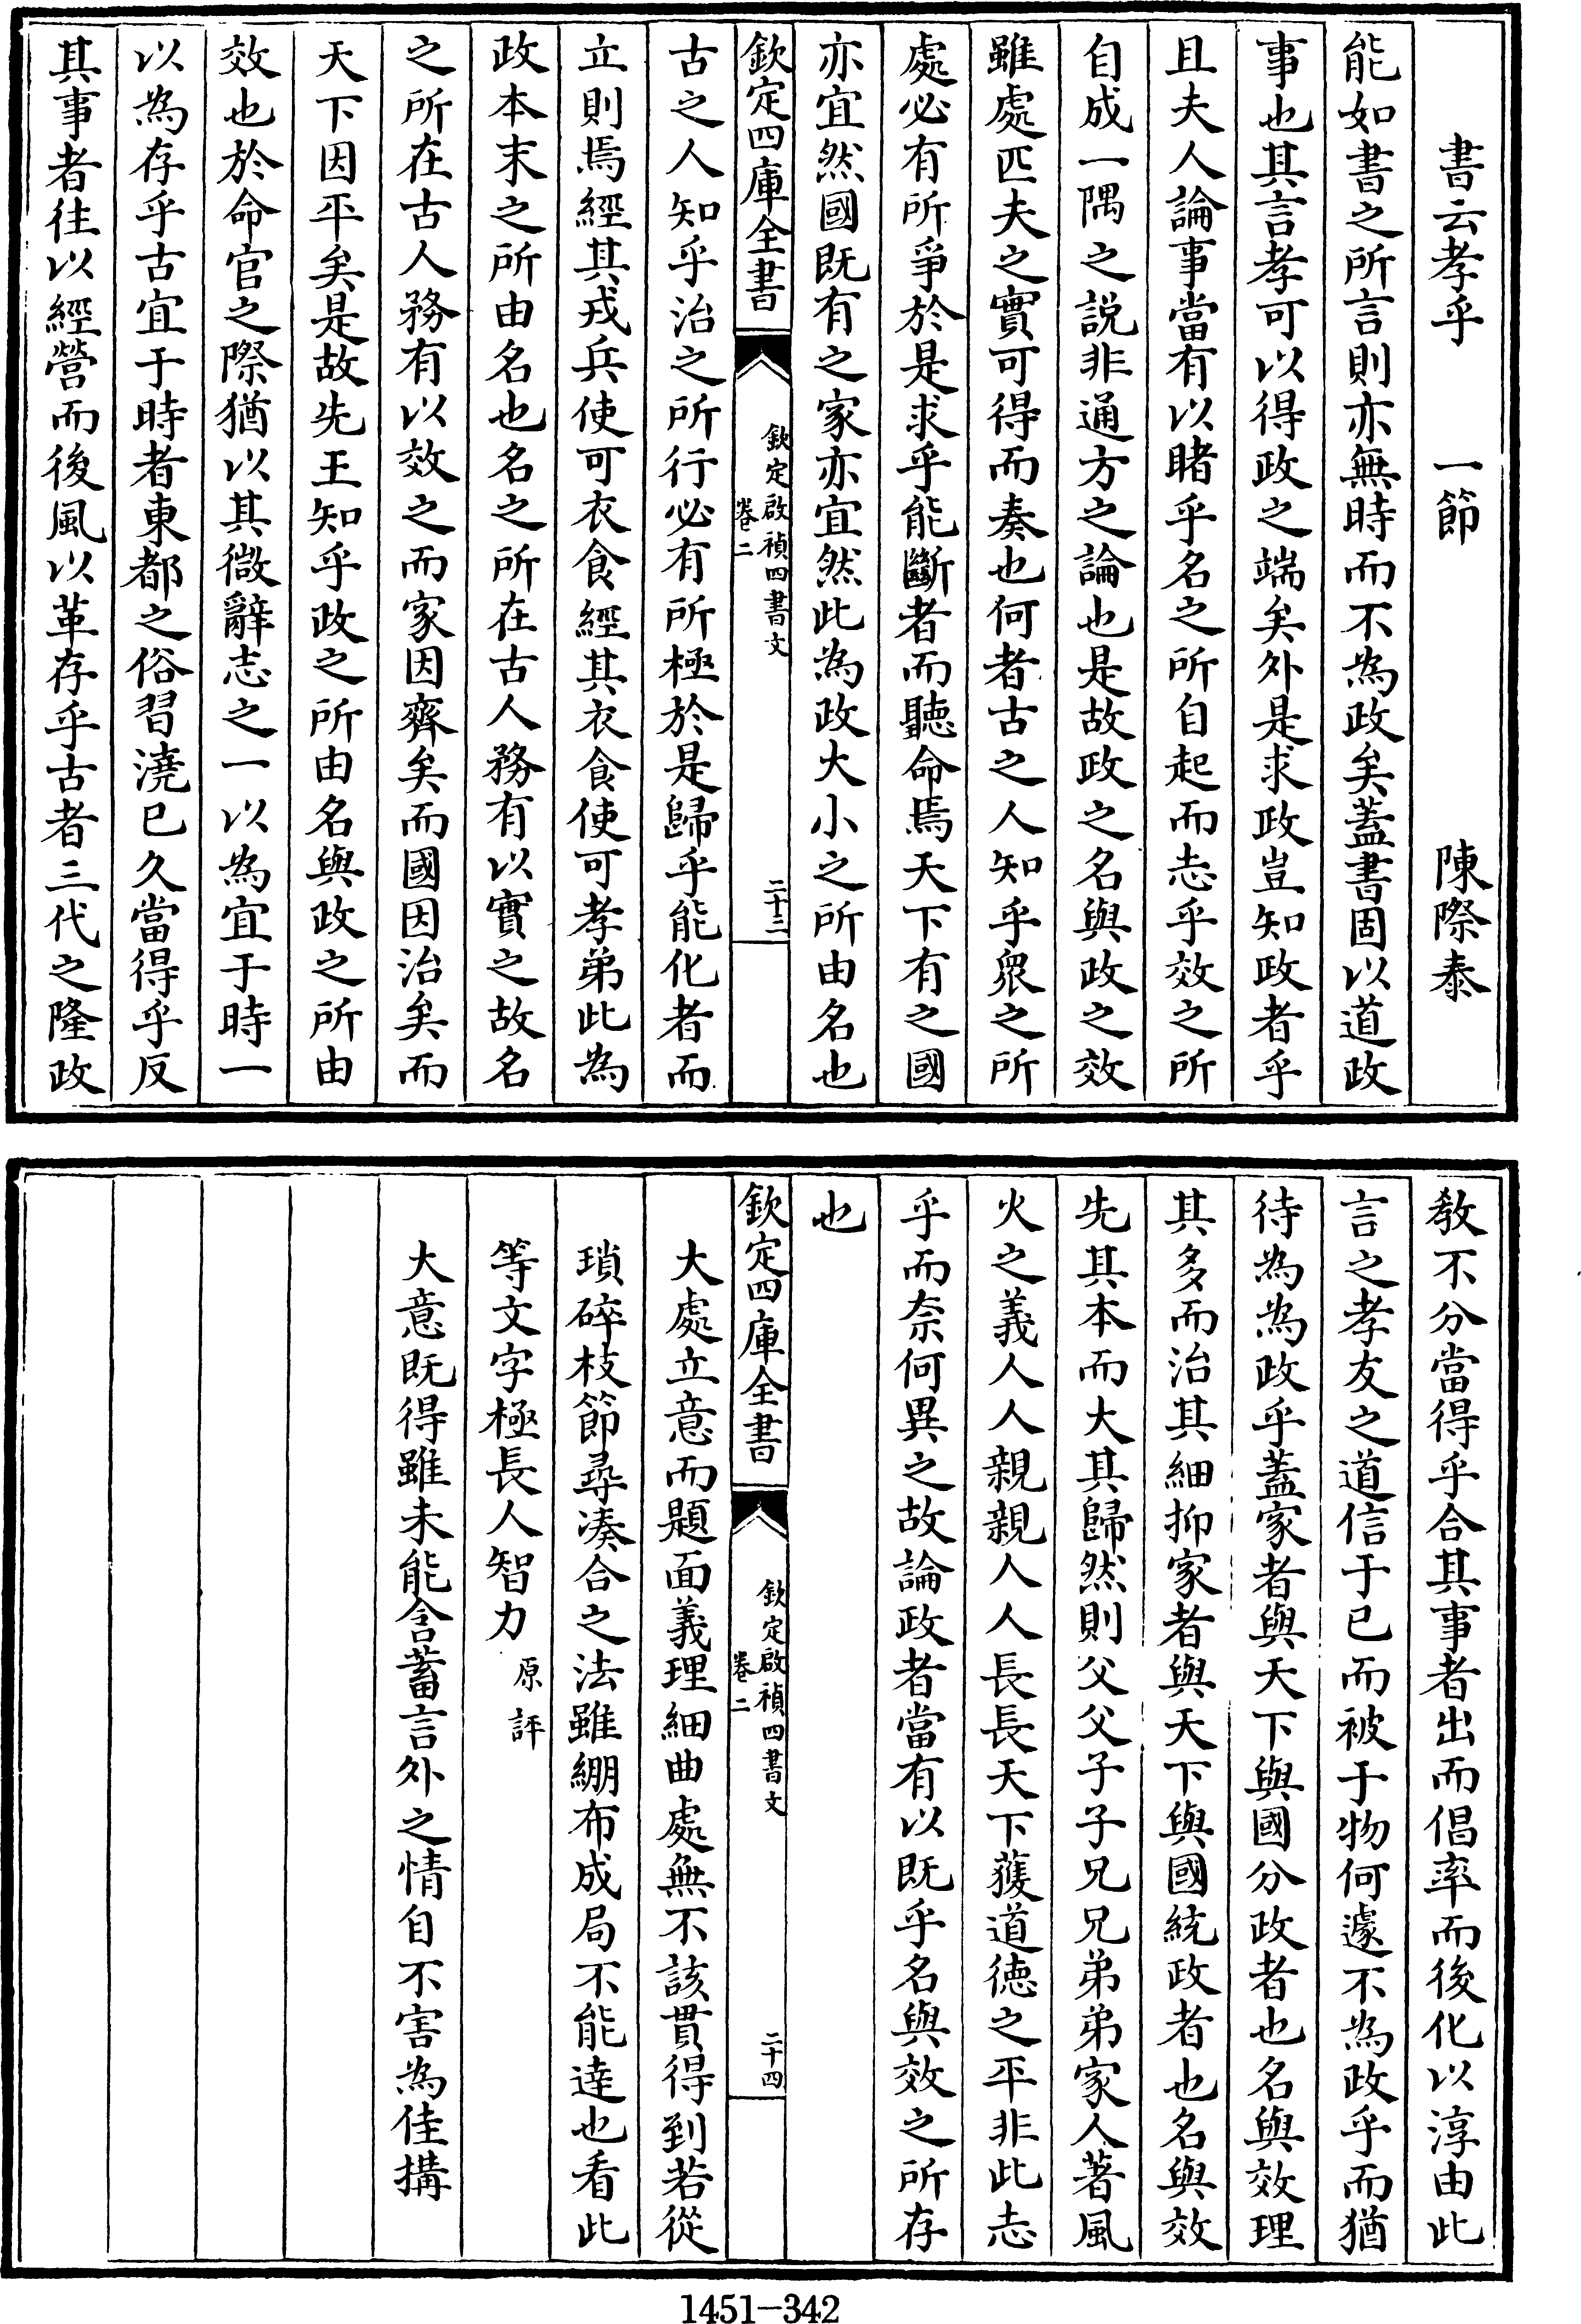 書云孝乎　一節　陳際泰
能如書之所言則亦無時而不為政矣蓋書固以道政
事也其言孝可以得政之端矣外是求政豈知政者乎
且夫人論事當有以睹乎名之所自起而志乎效之所
自成一隅之説非通方之論也是故政之名與政之效
雖處匹夫之實可得而奏也何者古之人知乎衆之所
處必有所爭於是求乎能斷者而聽命焉天下有之國
亦宜然國既有之家亦宜然此為政大小之所由名也
欽定四庫全書
欽定啟禎四書文
卷二
二十三
古之人知乎治之所行必有所極於是歸乎能化者而
立則焉經其戎兵使可衣食經其衣食使可孝弟此為
政本末之所由名也名之所在古人務有以實之故名
之所在古人務有以效之而家因齊矣而國因治矣而
天下因平矣是故先王知乎政之所由名與政之所由
效也於命官之際猶以其微辭志之一以為宜于時一
以為存乎古宜于時者東都之俗習澆已久當得乎反
其事者往以經營而後風以革存乎古者三代之隆政
教不分當得乎合其事者出而倡率而後化以淳由此
言之孝友之道信于已而被于物何遽不為政乎而猶
待為為政乎蓋家者與天下與國分政者也名與效理
其多而治其細抑家者與天下與國統政者也名與效
先其本而大其歸然則父父子子兄兄弟弟家人著風
火之義人人親親人人長長天下獲道徳之平非此志
乎而奈何異之故論政者當有以既乎名與效之所存
也
欽定四庫全書
欽定啟禎四書文
卷二
二十四
大處立意而題面義理細曲處無不該貫得到若從
瑣碎枝節尋湊合之法雖綳布成局不能達也看此
等文字極長人智力 原評
大意既得雖未能含蓄言外之情自不害為佳搆
1451-342